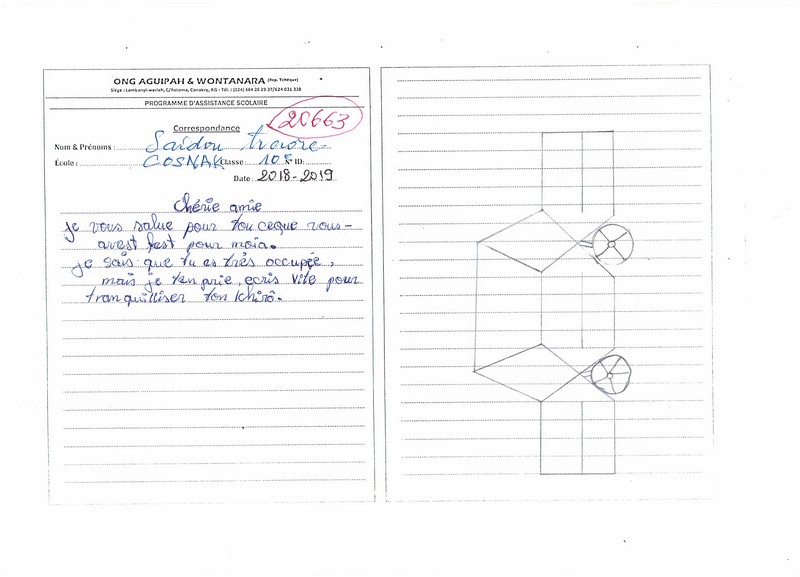 ONG AGUIPAH & WONTANARA (Rep. Tchèque)
Siège : Lambanyi-wariah, C/Ratoma, Conakry, RG - Tél. : (224) 664 26 29 37/624 031 338
PROGRAMME D'ASSISTANCE SCOLAIRE
20663
Correspondance
Nom & Prénoms : Saïdou traore
École : COSNAK Classe : 10e N° ID:
Date : 2018-2019
Chérie amie
je vous salue pour tou ceque vous-
avest fest pour moia.
je sais que tu es très occupée,
mais je ten prie, ecris vite pour
tranquilliser ton